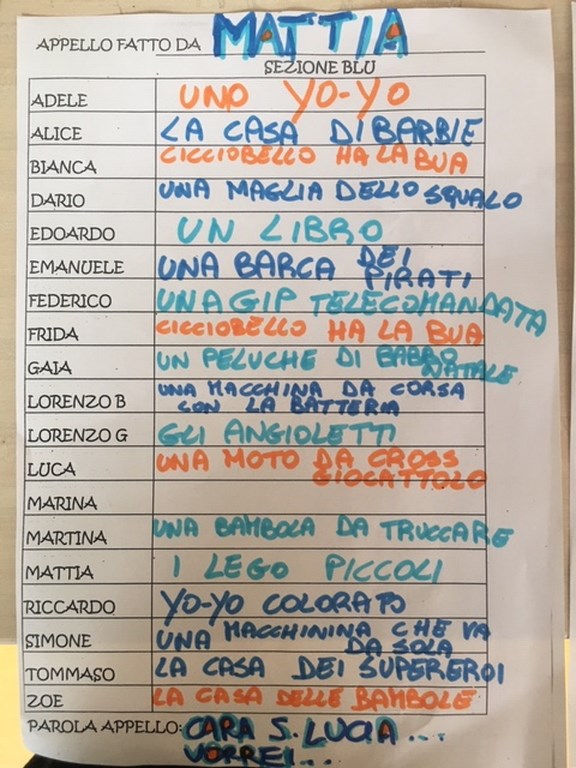 APPELLO FATTO DA MATTIA
SEZIONE BLU
ADELE UNO YO-YO
ALICE LA CASA DI BARBIE
BIANCA CICCIOBELLO HA LA BUA
DARIO UNA MAGLIA DELLO SQUALO
EDOARDO UN LIBRO
EMANUELE UNA BARCA DEI
PIRATI
FEDERICO UNA GIP TELECOMANDATA
FRIDA CICCIOBELLO HA LA BUA
GAIA UN PELUCHE DI BABBO
NATALE
LORENZO B UNA MACCHINA DA CORSA
CON LA BATTERIA
LORENZO G GLI ANGIOLETTI
LUCA UNA MOTO DA CROSS
GIOCATTOLO
MARINA
MARTINA UNA BAMBOLA DA TRUCCARE
MATTIA I LEGO PICCOLI
RICCARDO YO-YO COLORATO
SIMONE UNA MACCHININA CHE VA
DA SOLA
TOMMASO LA CASA DEI SUPEREROI
ZOE LA CASA DELLE BAMBOLE
PAROLA APPELLO: CARA S. LUCIA...
VORREI...